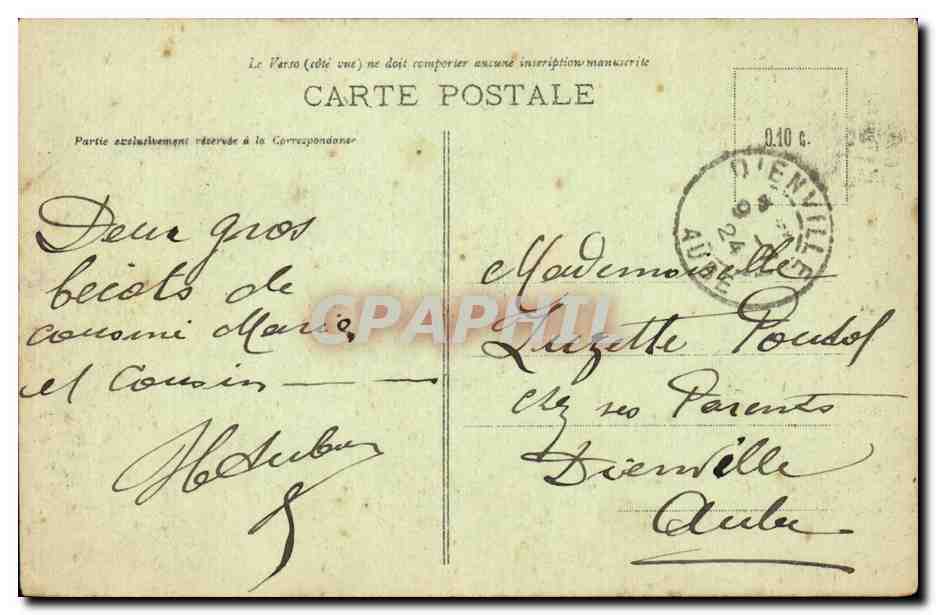 Le Verso (côté vue) ne doit comporter aucune inscription manuscrite
CARTE POSTALE
Partie exclusivement réservée à la Correspondance
0.10 c.
DIENVILLE
24
AUBE
Deux gros
becots de
cousine Marie
et cousin
Mademoiselle
Suzette
chez ses Parents
Dienville
Aube
CPAPHIL